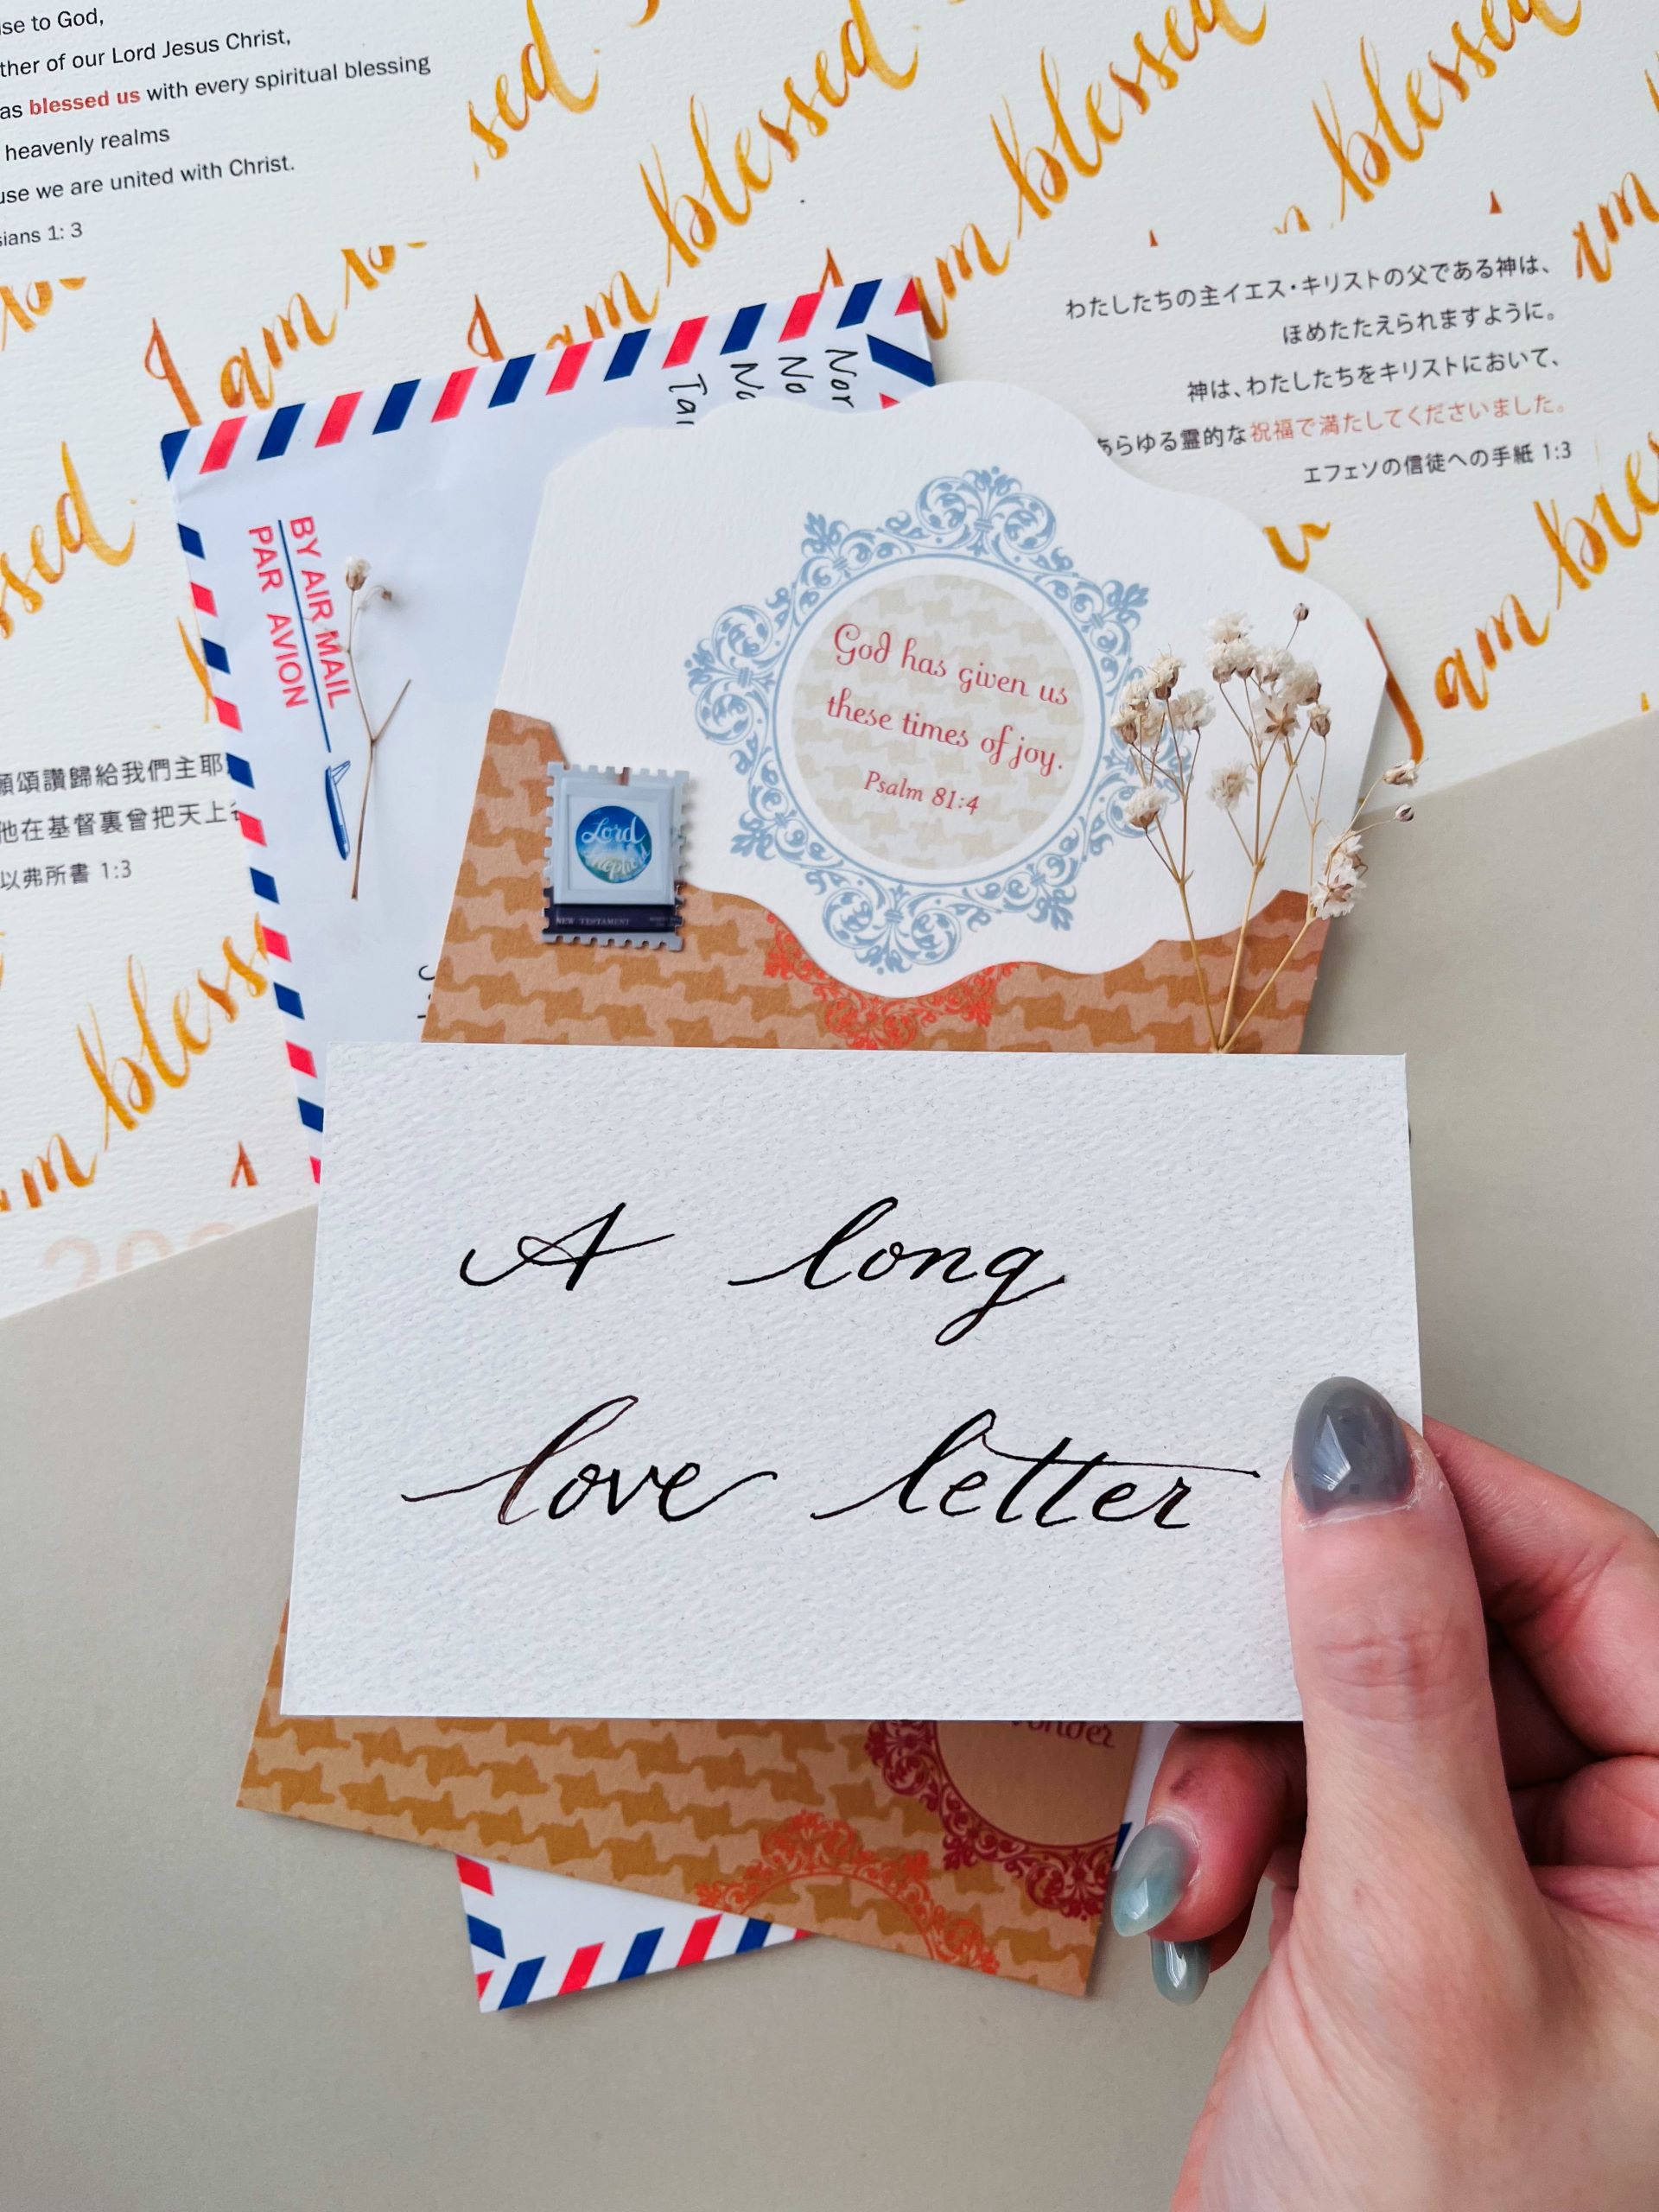 to God,
of our Lord Jesus Christ,
blessed us with every spiritual blessing
heavenly realms
we are united with Christ.
1: 3
I am blessed.
I am blessed.
I am blessed.
わたしたちの主イエス・キリストの父である神は、
ほめたたえられますように。
神は、わたしたちをキリストにおいて、
あらゆる霊的な祝福で満たしてくださいました。
エフェソの信徒への手紙 1:3
BY AIR MAIL
PAR AVION
No
God has given us
these times of joy.
Psalm 81:4
Lord
NEW TESTAMENT
願頌讚歸給我們主耶
他在基督裏曾把天上
以弗所書 1:3
am blessed
A long
love letter